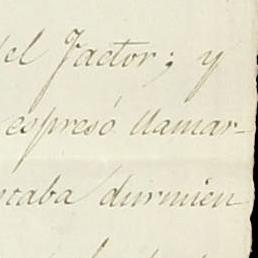 del Factor; y
espresó llamar-
ntaba durmien